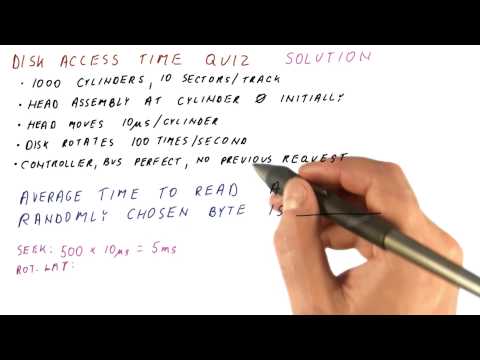 DISK ACCESS TIME QUIZ SOLUTION
• 1000 CYLINDERS, 10 SECTORS/TRACK
• HEAD ASSEMBLY AT CYLINDER 0 INITIALLY
• HEAD MOVES 10μs/CYLINDER
• DISK ROTATES 100 TIMES/SECOND
• CONTROLLER, BUS PERFECT, NO PREVIOUS REQUEST
AVERAGE TIME TO READ A
RANDOMLY CHOSEN BYTE IS
SEEK: 500 × 10μs = 5ms
ROT. LAT: